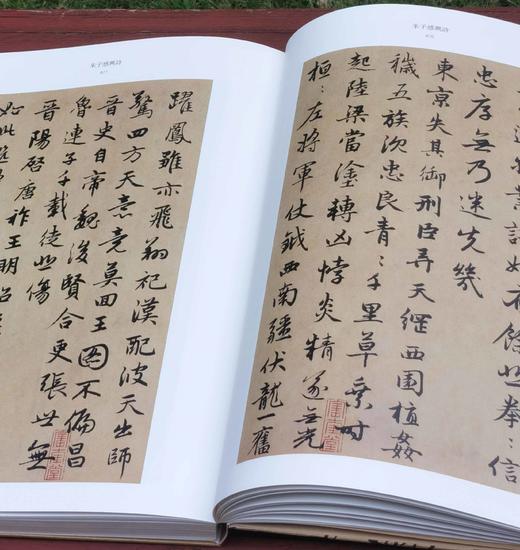 朱子感興詩
業託始有餘悲拳〻信
忠厚無乃迷先幾
東京失其御刑臣弄天綱西園植姦
穢五族沉忠良青〻千里草乘時
起陸梁當塗轉凶悖炎精遂無光
桓〻左將軍仗鉞西南疆伏龍一奮
朱子感興詩
躍鳳雛亦飛翔祀漢配彼天出師
驚四方天意竟莫回王圖不偏昌
晉史自帝魏後賢合更張世無
魯連子千載徒悲傷
晉陽啓唐祚王明紹
如此